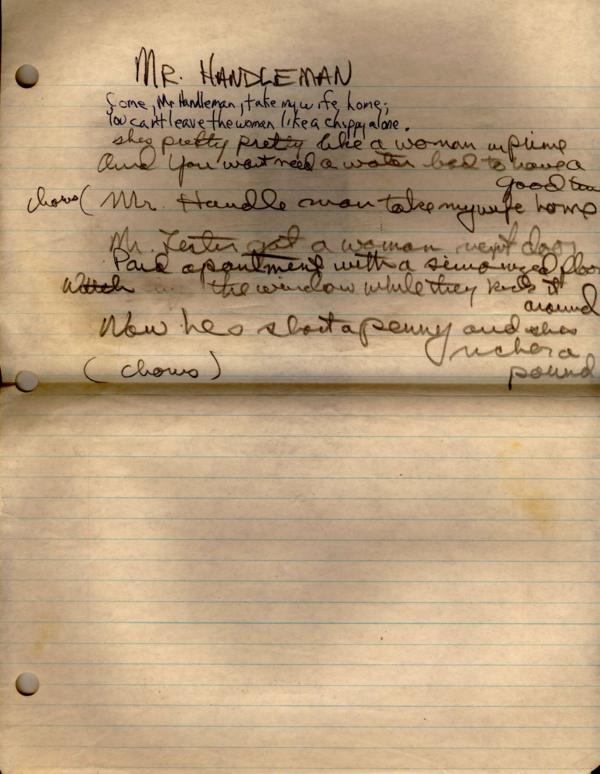 MR. HANDLEMAN
Come, Mr. Handleman, take my wife home;
You can't leave the woman like a chippy alone.
shes pretty pretty like a woman in prime
And you wont need a water bed to have a
good time
chorus ( Mr. Handle man take my wife home
Mr. Lester got a woman next door
Paid apartment with a floor
Watch the window while they kick it
around
Now hes short a penny and shes
richer a
pound
(chorus)